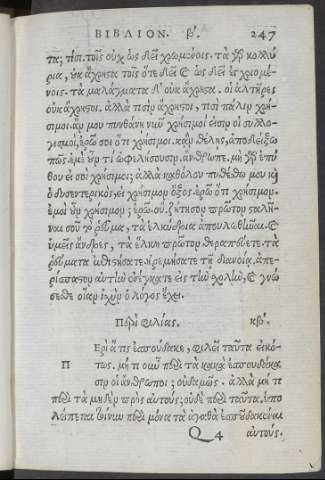 ΒΙΒΛΙΟΝ. β'. 247
τα; τίσι; τοῖς οὐχ ὡς δεῖ χρωμένοις. τὰ γὰρ κολλύ
ρια, οὐκ ἄχρηστα τοῖς ὅτε δεῖ καὶ ὡς δεῖ ἐγχριομέ
νοις. τὰ μαλάγματα δ' οὐκ ἄχρηστα. οἱ ἁλτῆρες
οὐκ ἄχρηστοι. ἀλλὰ τισὶν ἄχρηστοι, τισὶ πάλιν χρή
σιμοι. ἄν μου πυνθάνῃ νῦν χρήσιμοί εἰσιν οἱ συλλο
γισμοί, ἐρῶ σοι ὅτι χρήσιμοι. κἂν θέλῃς, ἀποδείξω
πῶς ἐμὲ οὖν τι ὠφελήσουσιν. ἄνθρωπε. μὴ γὰρ ἐπύ
θου εἰ σοὶ χρήσιμοι; ἀλλὰ καθόλου πυθέσθω μου καὶ
ὁ δυσεντερικός, εἰ χρήσιμον ὄξος ἐρῶ ὅτι χρήσιμον.
ἐμοὶ οὖν χρήσιμον; ἐρῶ, οὔ. ζήτησον πρῶτον σταλῆ
ναι σοῦ τὸ ῥεῦμα, τὰ ἑλκύδρια ἀπουλωθῆναι. καὶ
ὑμεῖς ἄνδρες, τὰ ἕλκη πρῶτον θεραπεύετε. τὰ
ῥεύματα ἐπιστήσατε. ἠρεμήσατε τῇ διανοίᾳ. ἀπε
ρίσπαστον αὐτὴν ἐνέγκατε εἰς τὴν σχολὴν, καὶ γνώ
σεσθε οἵαν ἰσχὺν ὁ λόγος ἔχει.
Περὶ φιλίας. κβ'.
Π Ερὶ ἅ τις ἐσπούδακε, φιλεῖ ταῦτα εἰκό
τως. μή τι οὖν περὶ τὰ κακὰ ἐσπουδάκα
σιν οἱ ἄνθρωποι; οὐδαμῶς. ἀλλὰ μή τι
περὶ τὰ μηδὲν πρὸς αὐτούς; οὐδὲ περὶ ταῦτα. ὑπο
λείπεται τοίνυν περὶ μόνα τὰ ἀγαθὰ ἐσπουδακέναι
Q 4 αὐτούς.